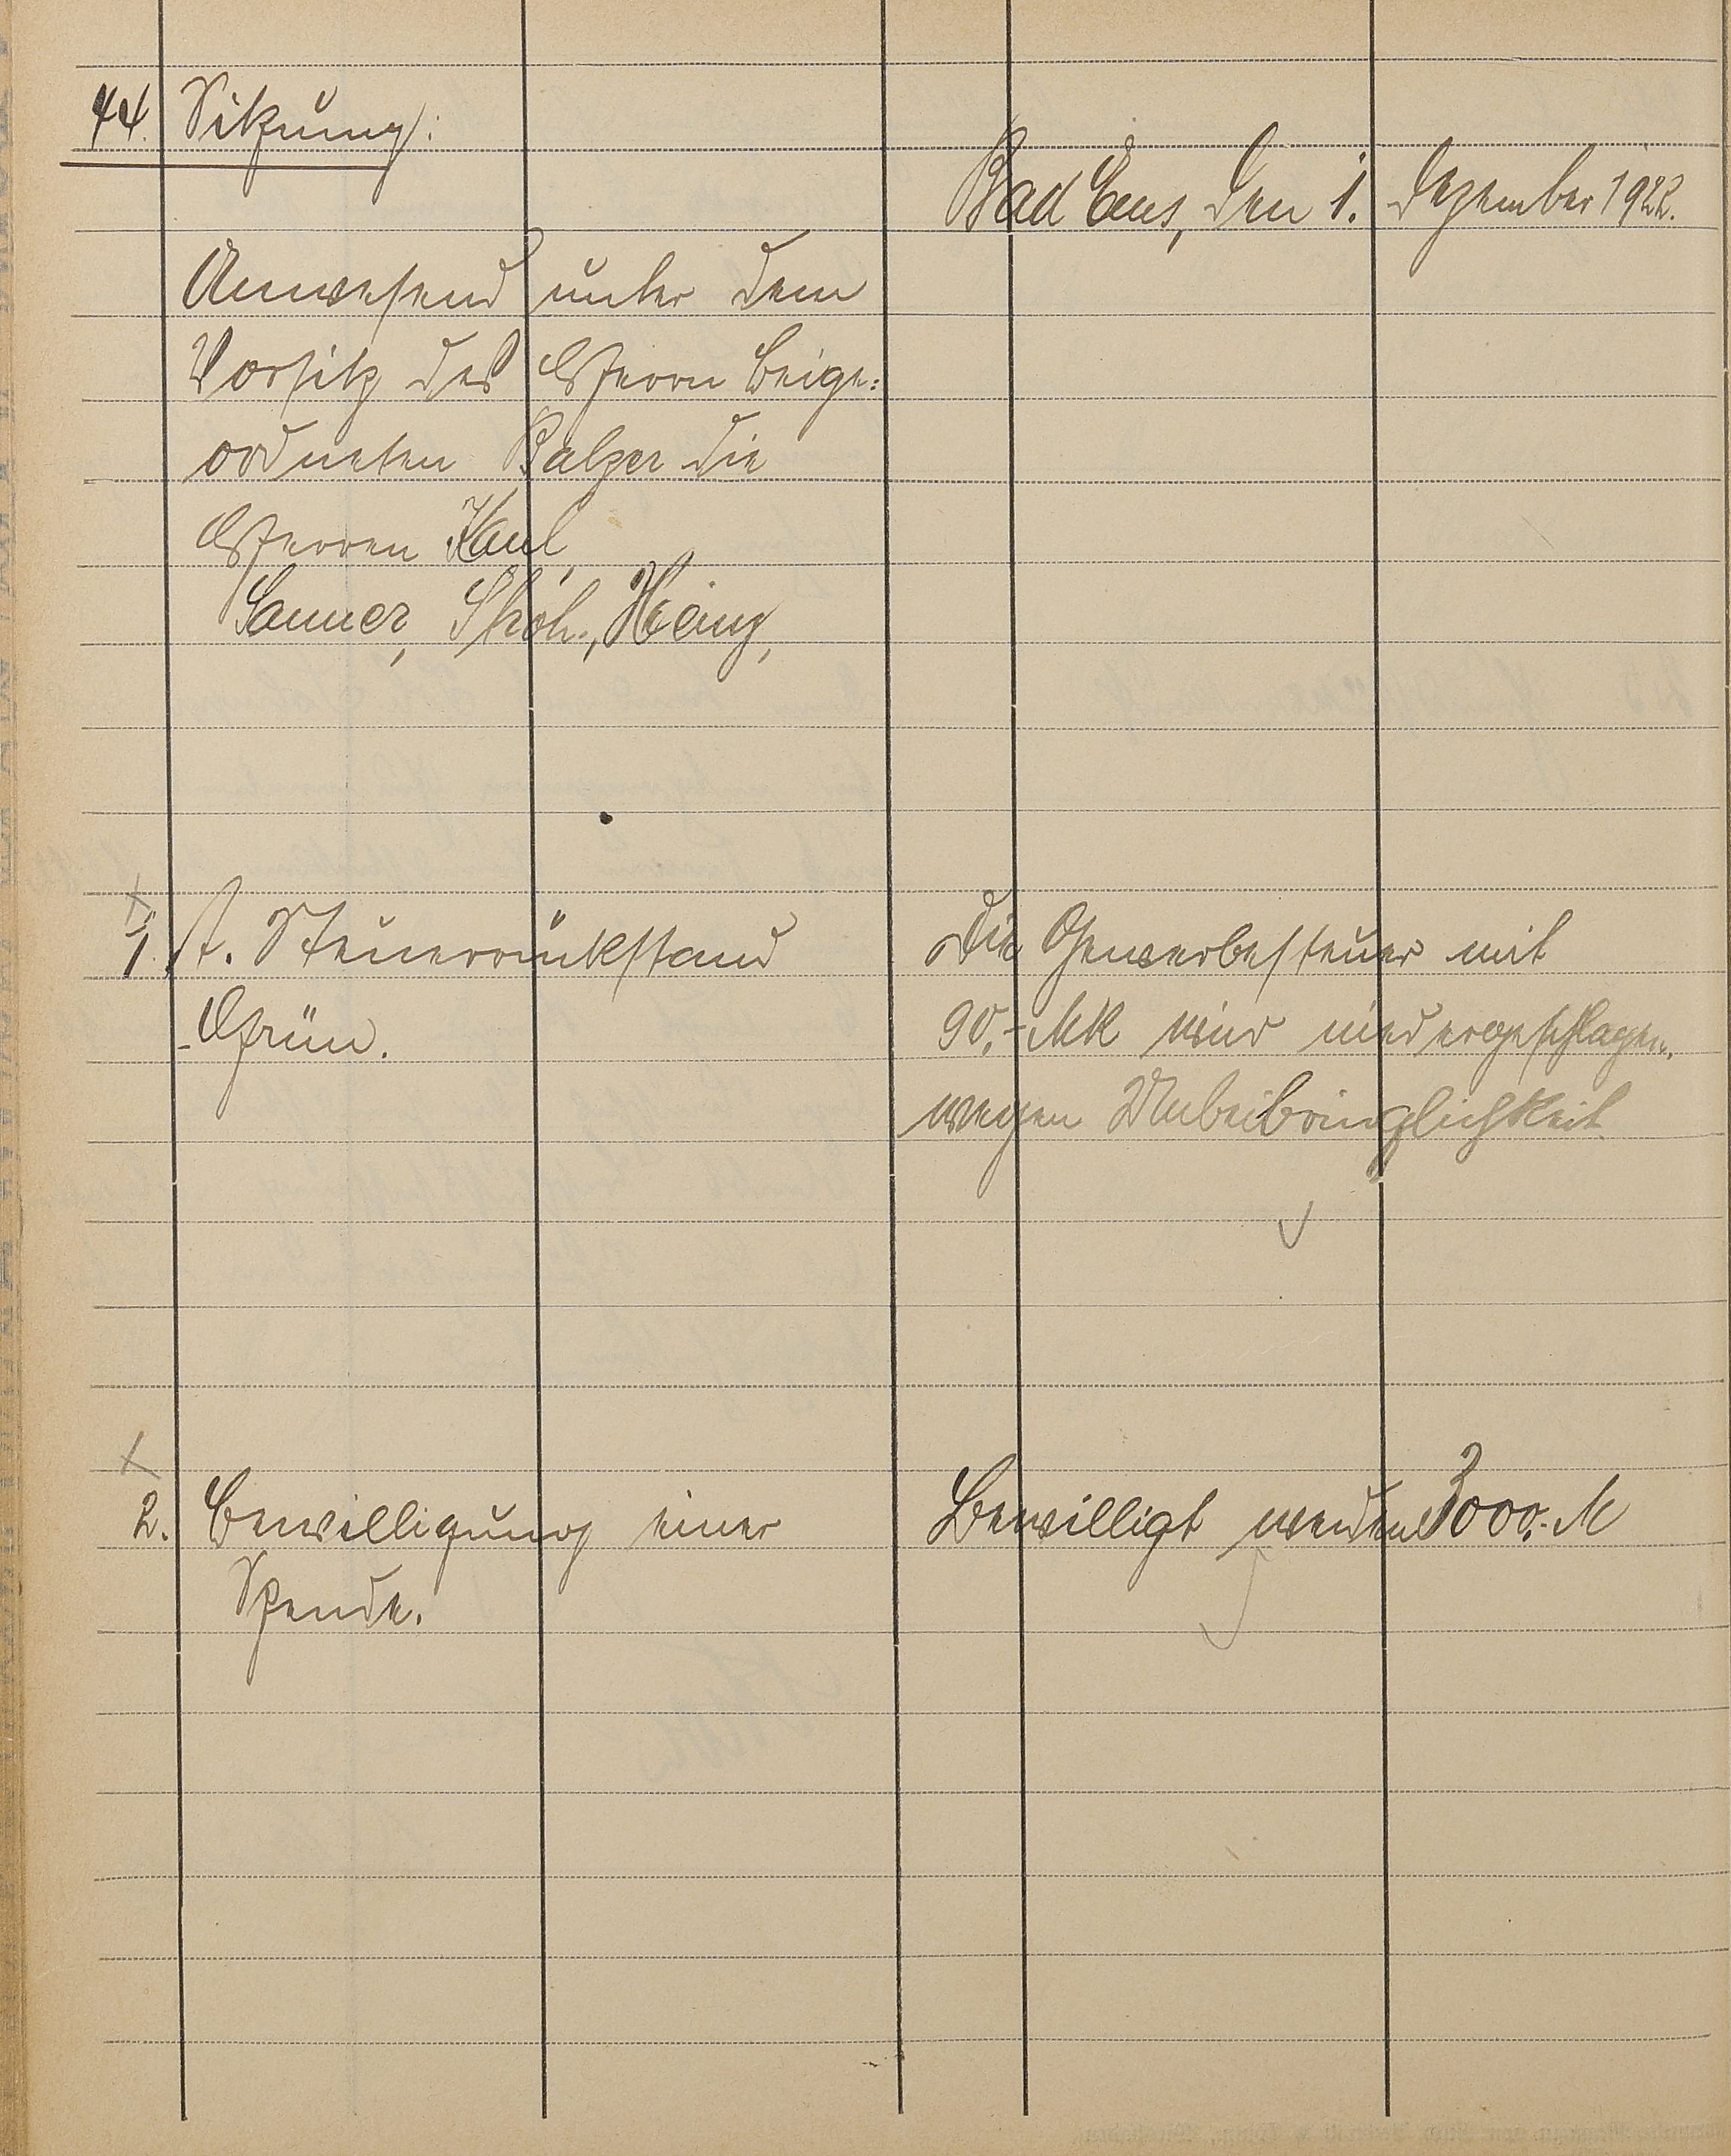 44. Sitzung:
Bad Ems, den 1. Dezember 1922.
Anwesend unter dem
Vorsitz des Herrn Beige:
ordneten Balzer die
Herren Kaul,
Sanner, Ströh., Heinz,
1. A. Steuerrückstand
Grün.
Die Gewerbesteuer mit
90,- Mk wird niedergeschlagen.
wegen Unbeibringlichkeit.
2. Bewilligung einer
Spende.
Bewilligt werden 3000,- M